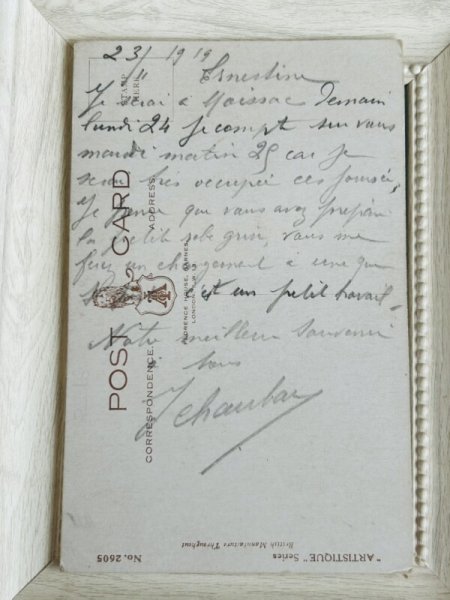 23/ 1919
Ernestine
Je serai à Moissac Demain
lundi 24 Je compt sur vous
mardi matin 25 car Je
serai très occupée ces
Je pense que vous avez
la petit robe gris, vous me
un changement à une que
c'est un petit travail
Notre meilleur souvenir
à tous
STAMP
HERE
POST CARD
CORRESPONDENCE.
ADDRESS.
FLORENCE HOUSE, BARNES,
LONDON
"ARTISTIQUE" Series
British Manufacture Throughout
No. 2605